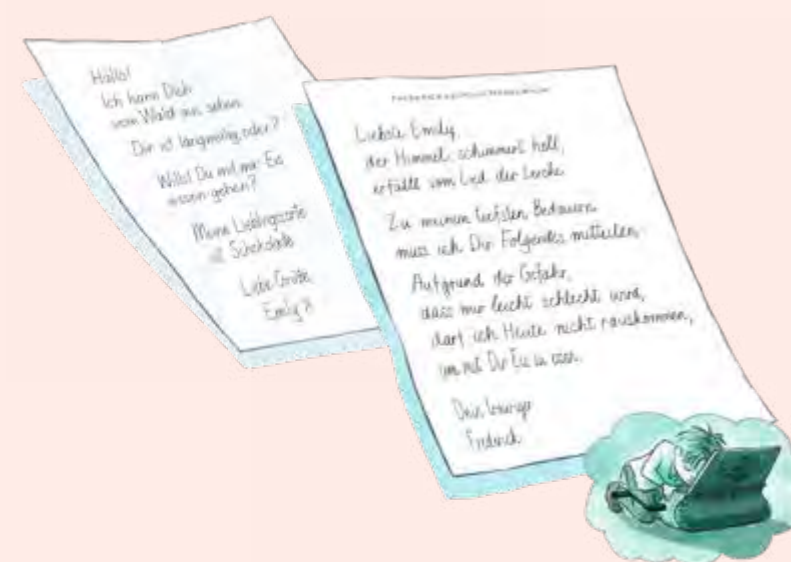 Hallo!
Ich kann Dich
vom Wald aus sehen.
Dir ist langweilig, oder?
Willst Du mit mir Eis
essen gehen?
Meine Lieblingssorte
ist Schokolade
Liebe Grüße
Emily
Liebste Emily,
der Himmel schimmert hell,
erfüllt vom Lied der Lerche.
Zu meinem tiefsten Bedauern
muss ich Dir Folgendes mitteilen:
Aufgrund der Gefahr,
dass mir leicht schlecht wird,
darf ich Heute nicht rauskommen,
um mit Dir Eis zu essen.
Dein trauriger
Frederick